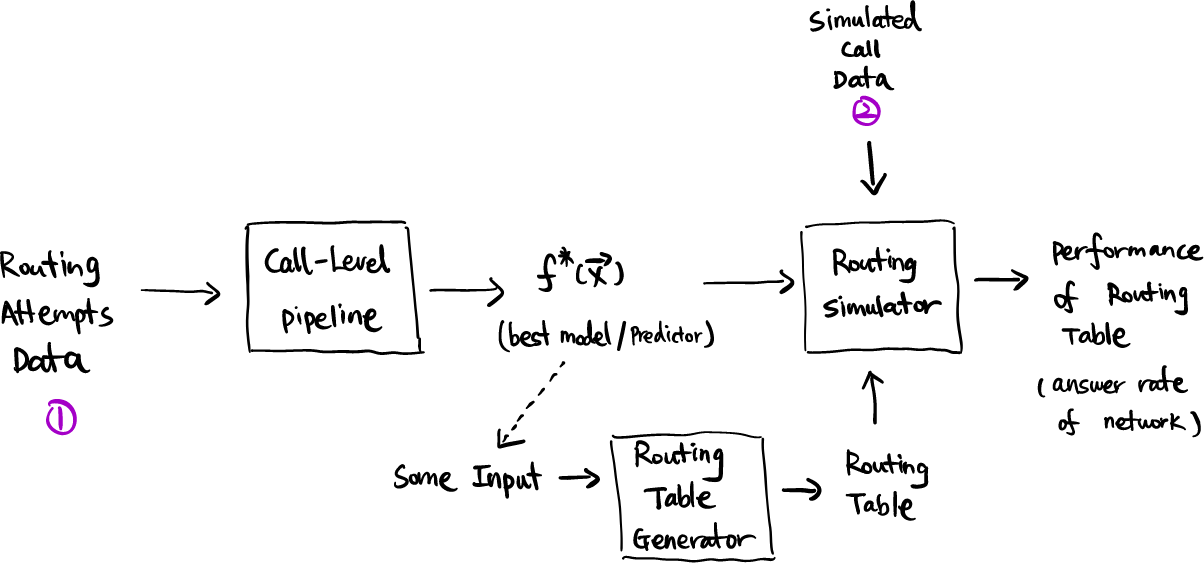 Simulated
Call
Data
②
Routing
Attempts
Data
①
Call-Level
pipeline
f*(x⃗)
(best model/Predictor)
Routing
Simulator
performance
of Routing
Table
(answer rate
of network)
Some Input
Routing
Table
Generator
Routing
Table